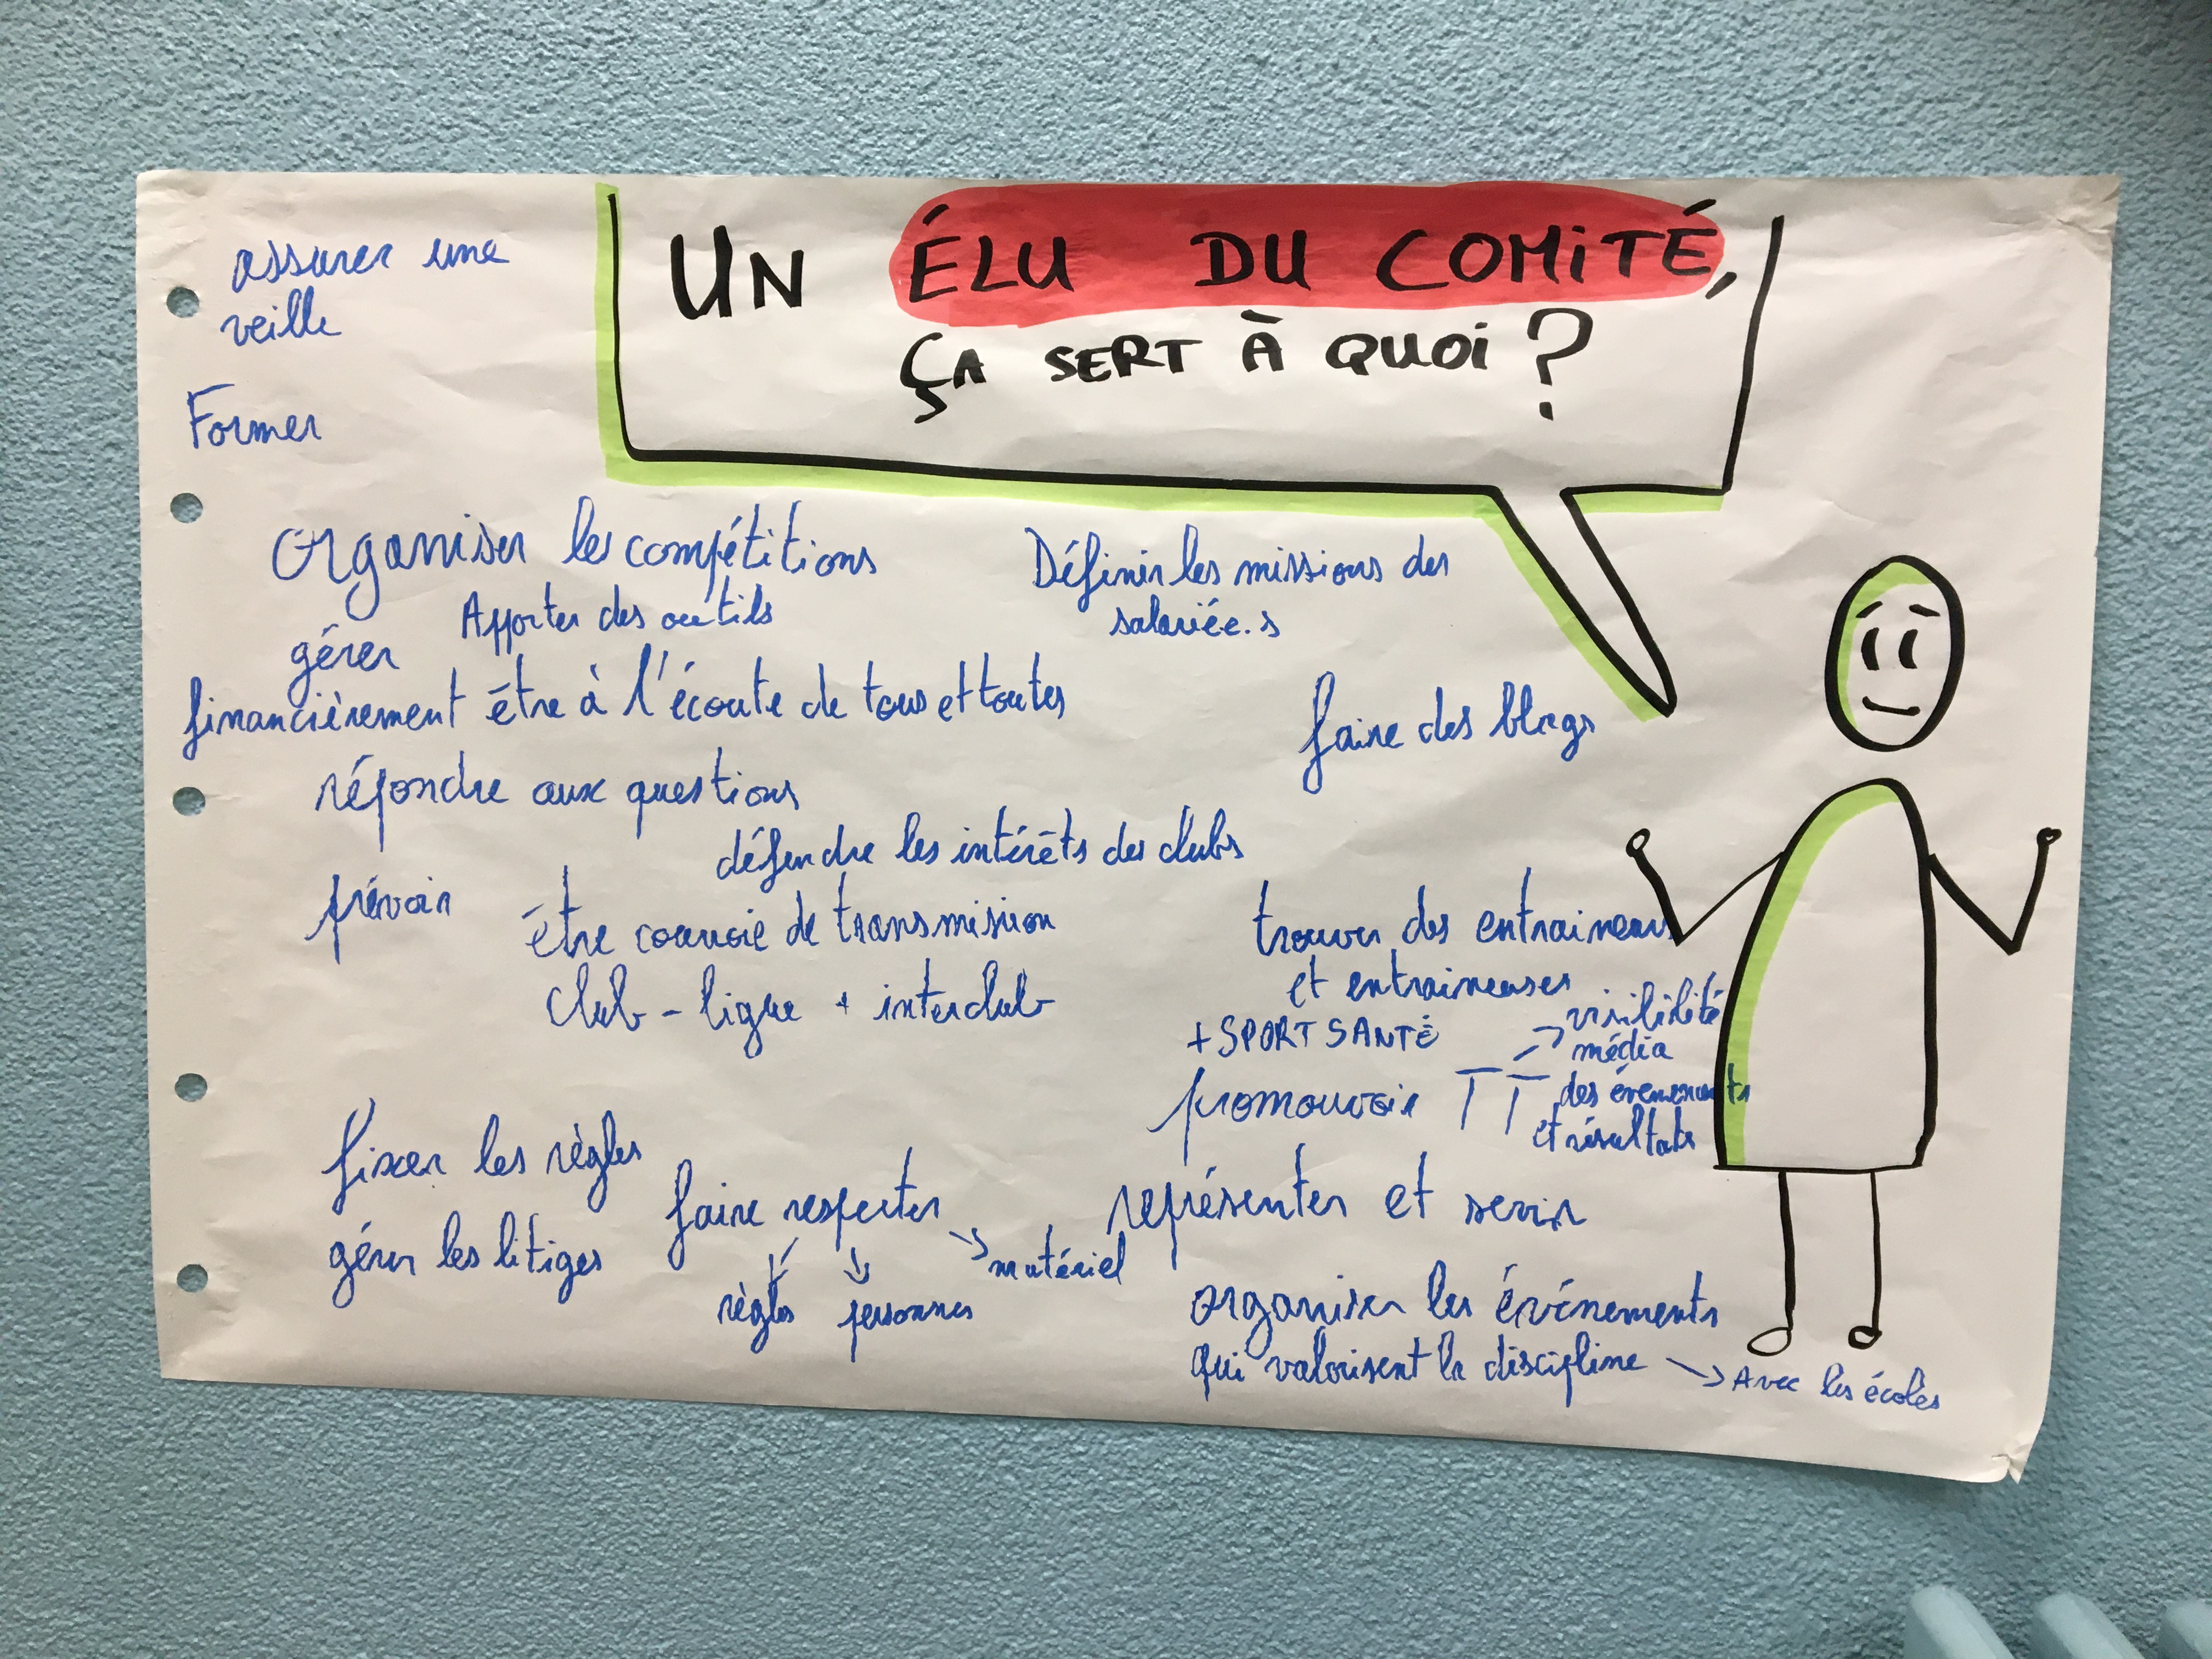 UN ÉLU DU COMITÉ,
ÇA SERT À QUOI ?
assurer une
veille
Former
organiser les compétitions
Apporter des outils
gérer
financièrement
être à l'écoute de tous et toutes
répondre aux questions
défendre les intérêts des clubs
prévoir
être courroie de transmission
club - ligue + interclub
fixer les règles
gérer les litiges
faire respecter
règles
personnes
matériel
Définir les missions des
salariée.s
faire des blogs
trouver des entraineurs
et entraineuses
+ SPORT SANTÉ
promouvoir TT
visibilité
média
des évènements
et résultats
représenter et servir
organiser les événements
qui valorisent la discipline
Avec les écoles